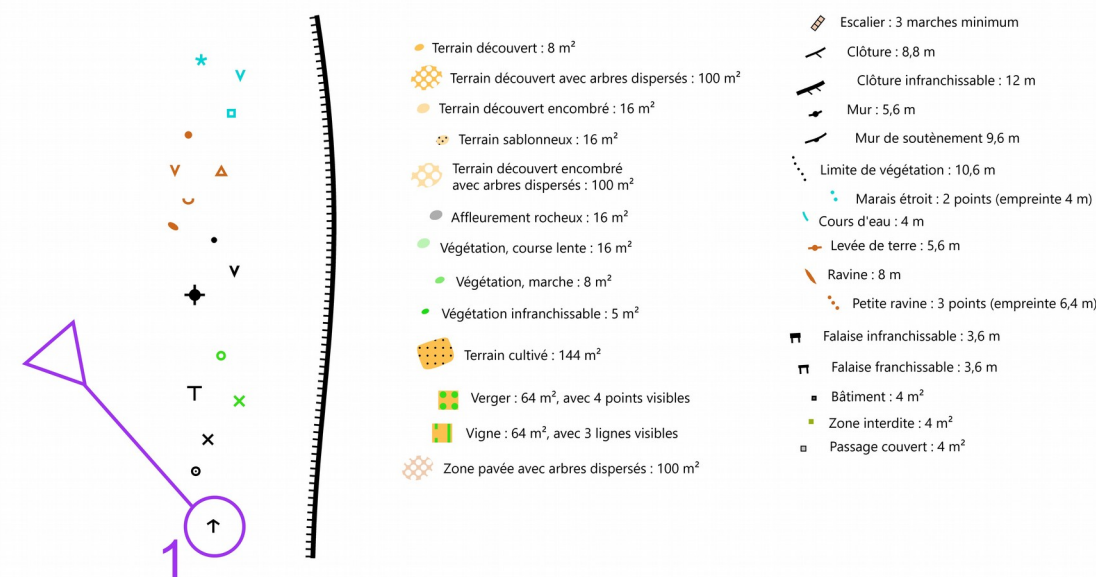 Terrain découvert : 8 m²
Terrain découvert avec arbres dispersés : 100 m²
Terrain découvert encombré : 16 m²
Terrain sablonneux : 16 m²
Terrain découvert encombré
avec arbres dispersés : 100 m²
Affleurement rocheux : 16 m²
Végétation, course lente : 16 m²
Végétation, marche : 8 m²
Végétation infranchissable : 5 m²
Terrain cultivé : 144 m²
Verger : 64 m², avec 4 points visibles
Vigne : 64 m², avec 3 lignes visibles
Zone pavée avec arbres dispersés : 100 m²
Escalier : 3 marches minimum
Clôture : 8,8 m
Clôture infranchissable : 12 m
Mur : 5,6 m
Mur de soutènement 9,6 m
Limite de végétation : 10,6 m
Marais étroit : 2 points (empreinte 4 m)
Cours d'eau : 4 m
Levée de terre : 5,6 m
Ravine : 8 m
Petite ravine : 3 points (empreinte 6,4 m)
Falaise infranchissable : 3,6 m
Falaise franchissable : 3,6 m
Bâtiment : 4 m²
Zone interdite : 4 m²
Passage couvert : 4 m²
1